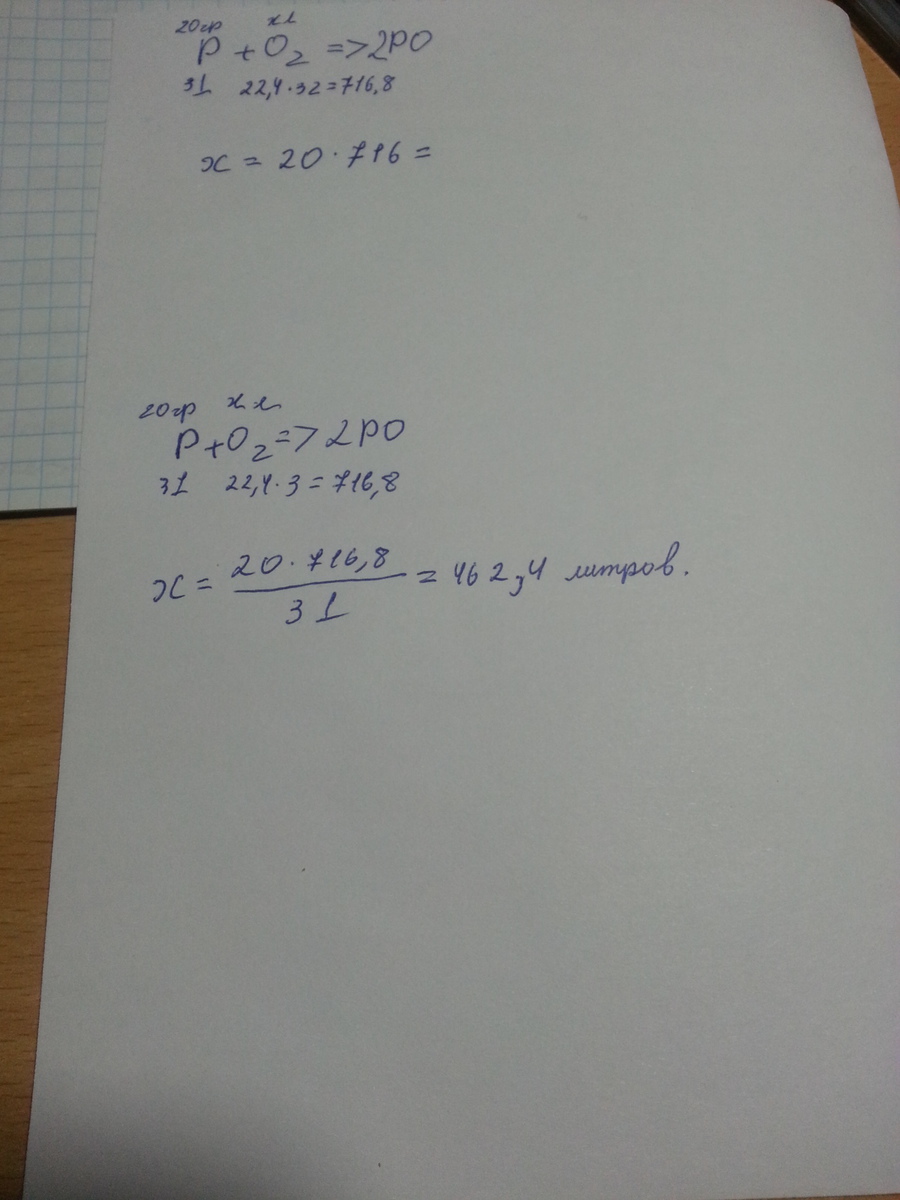 20гр хл
P + O2 => 2PO
31 22,4·32=716,8
x = 20·716 =
20гр хл
P+O2=> 2PO
31 22,4·3=716,8
x = 20·716,8 / 31 = 462,4 литров.